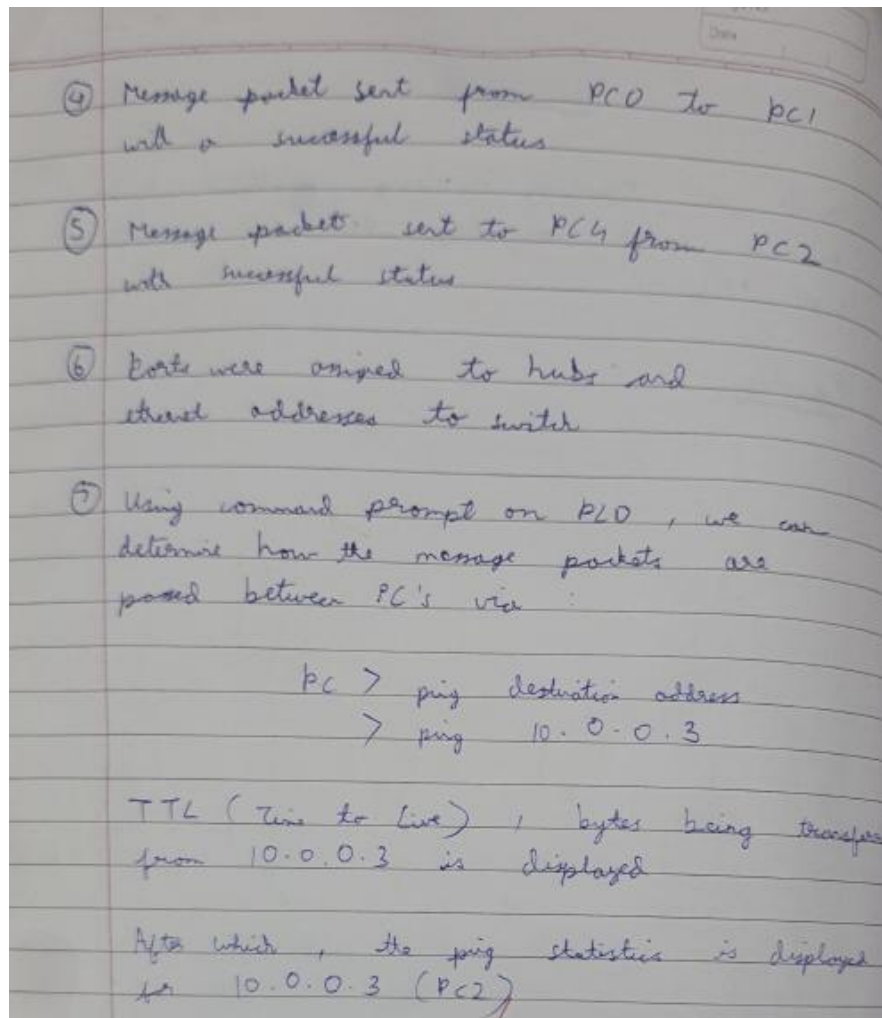 Date
④ Message packet sent from PC0 to PC1
with a successful status
⑤ Message packet sent to PC4 from PC2
with successful status
⑥ Ports were assigned to hubs and
addresses to switch
⑦ Using command prompt on PC0, we can
determine how the message packets are
passed between PC's via :
PC > ping destination address
> ping 10.0.0.3
TTL (Time to Live), bytes being transfer
from 10.0.0.3 is displayed
After which, the ping statistics is displayed
for 10.0.0.3 (PC2)